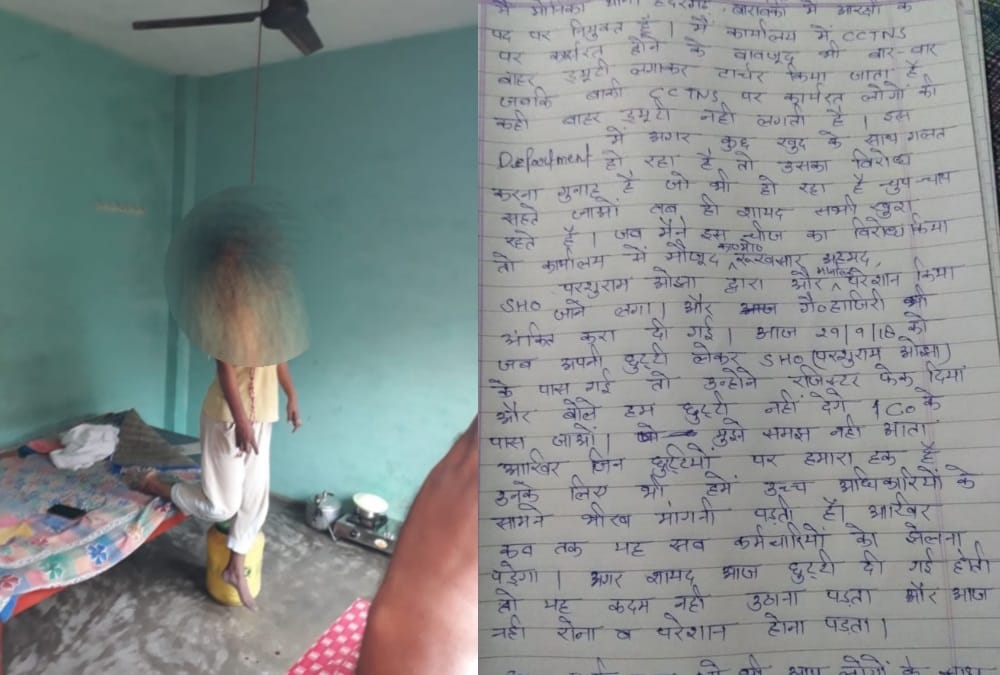 पद पर नियुक्त हूँ । मैं कार्यालय में CCTNS
पर कार्यरत होने के बावजूद भी बार-बार
बाहर ड्यूटी लगाकर टार्चर किया जाता है
जबकि बाकी CCTNS पर कार्यरत लोगों की
कही बाहर ड्यूटी नही लगती है । इस
में अगर कुछ खुद के साथ गलत
Department हो रहा है तो उसका विरोध
करना गुनाह है जो भी हो रहा है चुप-चाप
सहते जाओ तब ही शायद सभी खुश
रहते है । जब मैने इस चीज का विरोध किया
तो कार्यालय में मौजूद का०मो० रूखसार अहमद,
SHO परशुराम ओझा द्वारा और परेशान किया
जाने लगा । और गै०हाजिरी भी
अंकित करा दी गई । आज 29/9/18 को
जब अपनी छुट्टी लेकर SHO (परशुराम ओझा)
के पास गई तो उन्होने रजिस्टर फेक दिया
और बोले हम छुट्टी नहीं देगे CO के
पास जाओ । मुझे समझ नही आता
आखिर जिन छुट्टियों पर हमारा हक है
उनके लिए भी हमें उच्च अधिकारियों के
सामने भीख मांगनी पड़ती है। आखिर
कब तक यह सब कर्मचारियों को झेलना
पड़ेगा । अगर शायद आज छुट्टी दी गई होती
तो यह कदम नही उठाना पड़ता और आज
नही रोना व परेशान होना पड़ता ।